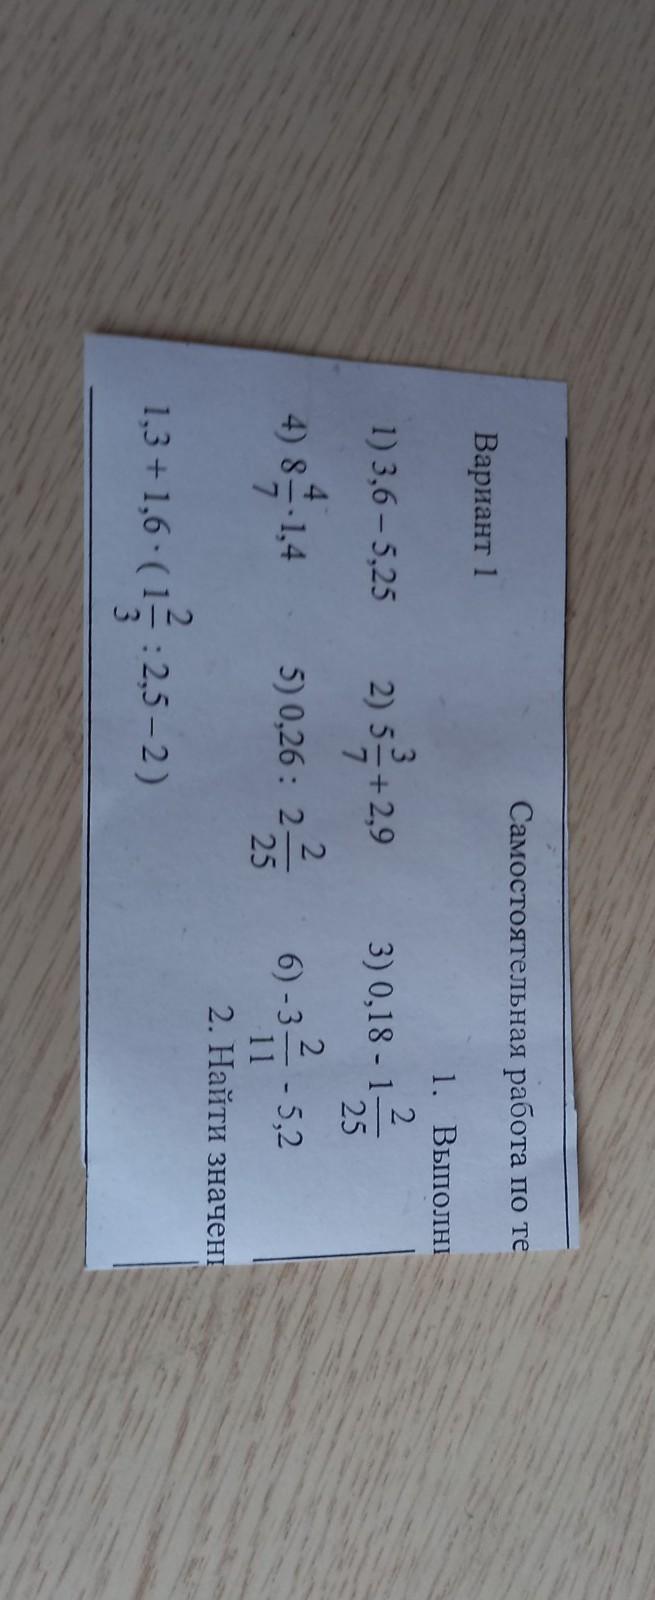 Самостоятельная работа по те
Вариант 1
1. Выполн
1) 3,6 – 5,25 2) 5 3/7 + 2,9 3) 0,18 - 1 2/25
4) 8 4/7 · 1,4 5) 0,26 : 2 2/25 6) -3 2/11 - 5,2
2. Найти значен
1,3 + 1,6 · ( 1 2/3 : 2,5 – 2 )